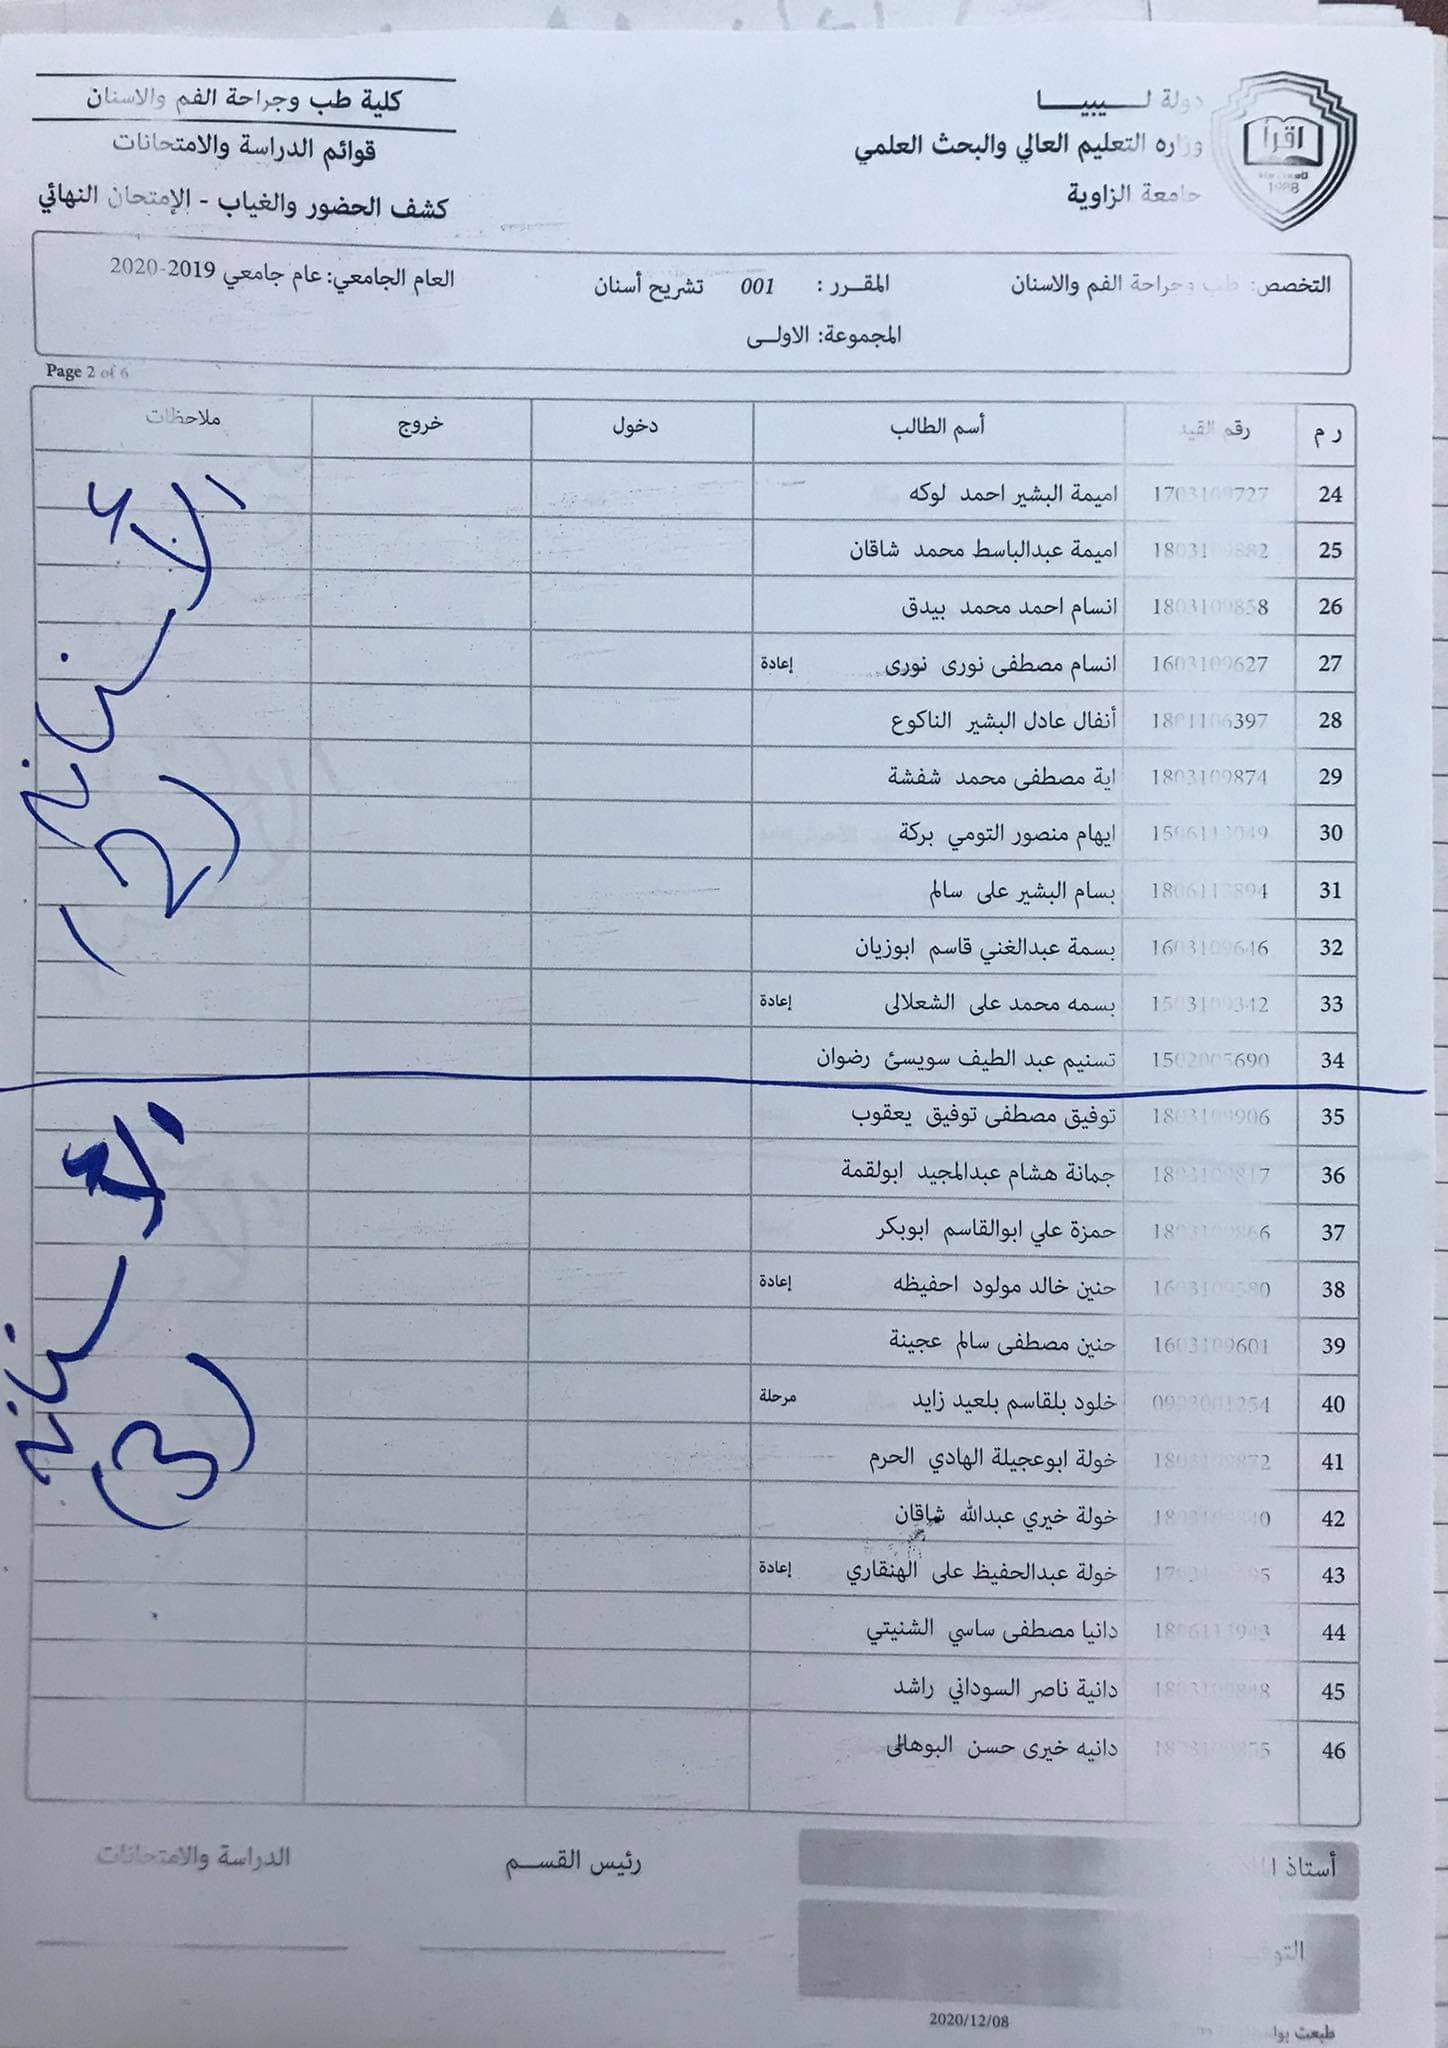 دولة لـــيبيـــا
وزاره التعليم العالي والبحث العلمي
جامعة الزاوية
اقرأ
1988
كلية طب وجراحة الفم والاسنان
قوائم الدراسة والامتحانات
كشف الحضور والغياب - الإمتحان النهائي
التخصص: طب وجراحة الفم والاسنان المقـــرر : 001 تشريح أسنان العام الجامعي: عام جامعي 2019-2020
المجموعة: الاولــى
Page 2 of 6
ر م رقم القيد أسم الطالب دخول خروج ملاحظات
24 1703109727 اميمة البشير احمد لوكه
25 1803109882 اميمة عبدالباسط محمد شاقان
26 1803109858 انسام احمد محمد بيدق
27 1603109627 انسام مصطفى نورى نورى إعادة
28 1801106397 أنفال عادل البشير الناكوع
29 1803109874 اية مصطفى محمد شفشة
30 ايهام منصور التومي بركة
31 بسام البشير على سالم
32 1603109646 بسمة عبدالغني قاسم ابوزيان
33 1503109342 بسمه محمد على الشعلالى إعادة
34 1502005690 تسنيم عبد الطيف سويسئ رضوان
35 1803109906 توفيق مصطفى توفيق يعقوب
36 1803109817 جمانة هشام عبدالمجيد ابولقمة
37 1803109866 حمزة علي ابوالقاسم ابوبكر
38 1603109580 حنين خالد مولود احفيظه إعادة
39 1603109601 حنين مصطفى سالم عجينة
40 خلود بلقاسم بلعيد زايد مرحلة
41 1803109872 خولة ابوعجيلة الهادي الحرم
42 خولة خيري عبدالله شاقان
43 خولة عبدالحفيظ على الهنقاري إعادة
44 دانيا مصطفى ساسي الشنيتي
45 دانية ناصر السوداني راشد
46 دانيه خيرى حسن البوهالى
الاستبانة
(2)
الاستبانة
(3)
أستاذ رئيس القســـم الدراسة والامتحانات
2020/12/08
طبعت